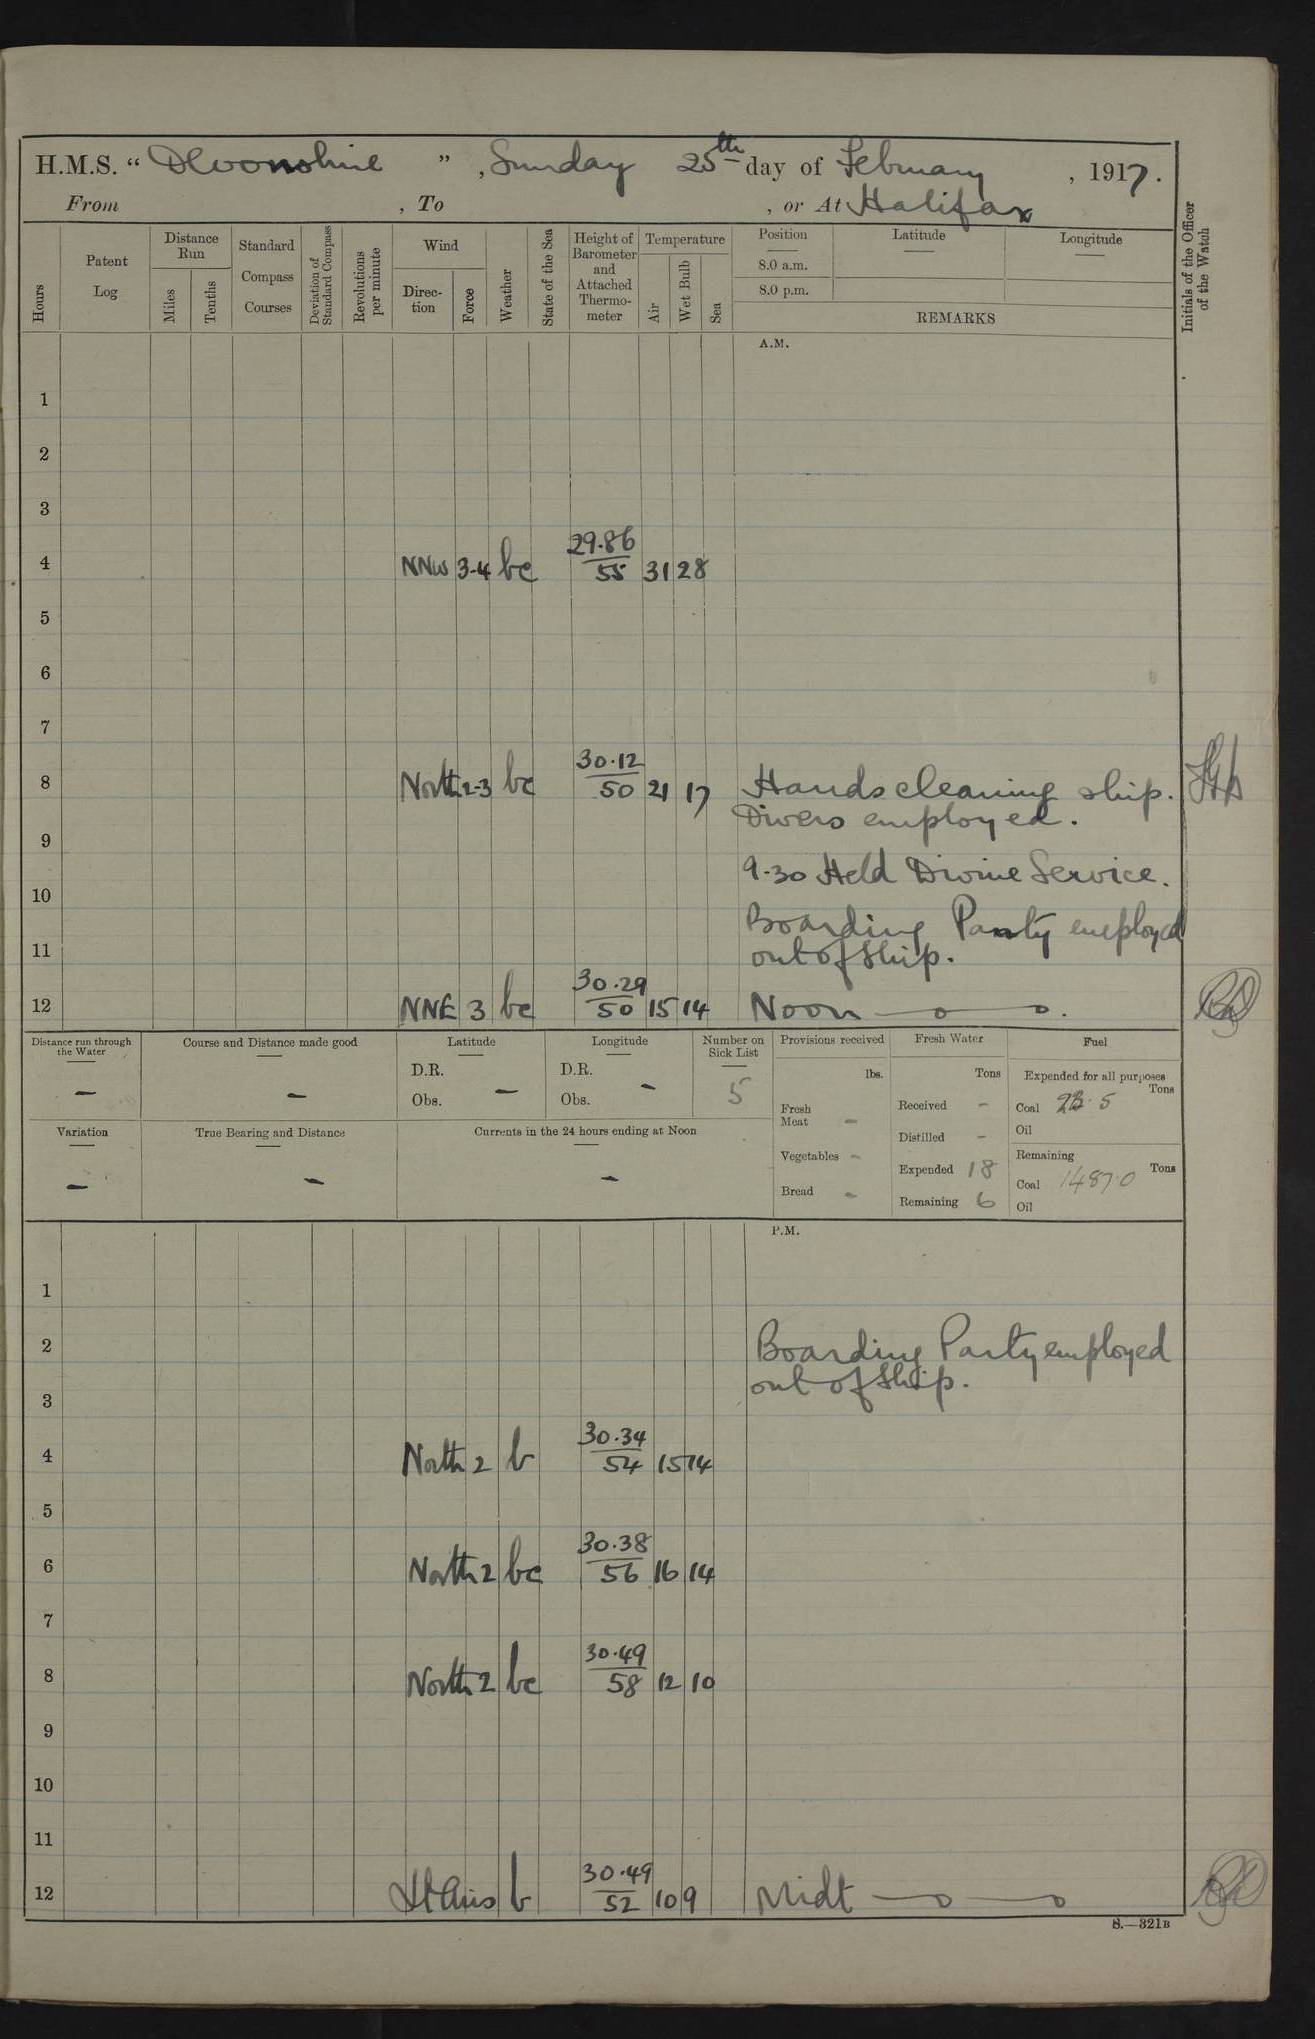 H.M.S. “ Devonshire ” , Sunday 25th day of February , 1917.
From , To , or At Halifax
Hours
Patent Log
Distance Run
Miles
Tenths
Standard Compass Courses
Deviation of Standard Compass
Revolutions per minute
Wind
Direction
Force
Weather
State of the Sea
Height of Barometer and Attached Thermometer
Temperature
Air
Wet Bulb
Sea
Position Latitude Longitude
8.0 a.m.
8.0 p.m.
REMARKS
Initials of the Officer of the Watch
A.M.
1
2
3
29.86
4 NNW 3-4 bc 55 31 28
5
6
7
30.12
8 North 2-3 bc 50 21 17 Hands cleaning ship.
Divers employed.
9
9.30 Held Divine Service.
10
Boarding Party employed
11 out of ship.
30.29
12 NNE 3 bc 50 15 14 Noon
Distance run through the Water –
Course and Distance made good –
Latitude
D.R.
Obs. –
Longitude
D.R.
Obs. –
Number on Sick List
5
Provisions received
lbs.
Fresh Meat –
Vegetables –
Bread –
Fresh Water
Tons
Received –
Distilled –
Expended 18
Remaining 6
Fuel
Expended for all purposes
Tons
Coal 23.5
Oil
Remaining
Tons
Coal 1487.0
Oil
Variation –
True Bearing and Distance –
Currents in the 24 hours ending at Noon –
P.M.
1
2 Boarding Party employed
out of ship.
3
30.34
4 North 2 b 54 15 14
5
30.38
6 North 2 bc 56 16 14
7
30.49
8 North 2 bc 58 12 10
9
10
11
30.49
12 Lt Airs b 52 10 9 Midt
S.—321B